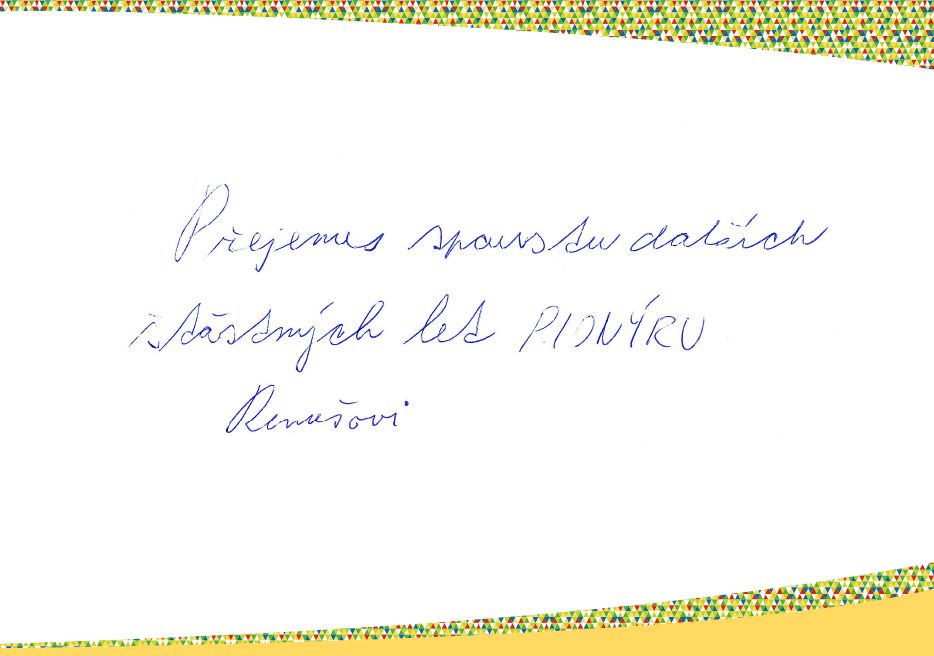 Přejemes spoustu dalších
štástných let PIONÝRU
Renušovi